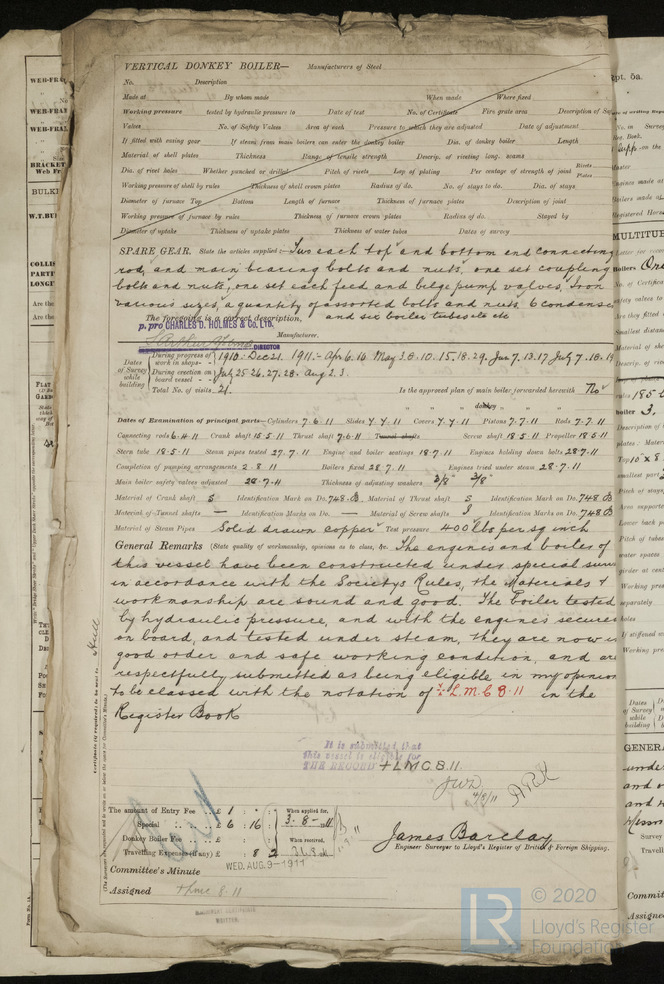 VERTICAL DONKEY BOILER— Manufacturers of Steel
No. Description
Made at By whom made When made Where fixed
Working pressure tested by hydraulic pressure to Date of test No. of Certificate Fire grate area Description of Saf
Valves No. of Safety Valves Area of each Pressure to which they are adjusted Date of adjustment
If fitted with easing gear If steam from main boilers can enter the donkey boiler Dia. of donkey boiler Length
Material of shell plates Thickness Range of tensile strength Descrip. of riveting long. seams
Dia. of rivet holes Whether punched or drilled Pitch of rivets Lap of plating Per centage of strength of joint Rivets Plates
Working pressure of shell by rules Thickness of shell crown plates Radius of do. No. of stays to do. Dia. of stays
Diameter of furnace Top Bottom Length of furnace Thickness of furnace plates Description of joint
Working pressure of furnace by rules Thickness of furnace crown plates Radius of do. Stayed by
Diameter of uptake Thickness of uptake plates Thickness of water tubes Dates of survey
SPARE GEAR. State the articles supplied:— Two each top and bottom end connecting
rod, and main bearing bolts and nuts, one set coupling
bolts and nuts, one set each feed and bilge pump valves, Iron
various sizes, a quantity of assorted bolts and nuts 6 condenser
The foregoing is a correct description, and six boiler tubes etc etc
p. pro CHARLES D. HOLMES & CO. LTD.
DIRECTOR Manufacturer.
Dates of Survey while building
During progress of work in shops - - 1910:- Dec 21. 1911:- Apr 6. 14 May 3. 8. 10. 15. 18. 29. Jun 7. 13. 17 July 7. 10. 19
During erection on board vessel - - July 25. 26. 27. 28. Aug 2. 3.
Total No. of visits 21. Is the approved plan of main boiler forwarded herewith No
" " " donkey " " "
Dates of Examination of principal parts—Cylinders 7.6.11 Slides 4.7.11 Covers 4.7.11 Pistons 7.7.11 Rods 7.7.11
Connecting rods 6.4.11 Crank shaft 15.5.11 Thrust shaft 7.6.11 Tunnel shafts Screw shaft 18.5.11 Propeller 18.5.11
Stern tube 18.5.11 Steam pipes tested 27.7.11 Engine and boiler seatings 18.7.11 Engines holding down bolts 28.7.11
Completion of pumping arrangements 2.8.11 Boilers fixed 28.7.11 Engines tried under steam 28.7.11
Main boiler safety valves adjusted 28.7.11 Thickness of adjusting washers 3/8" 3/8"
Material of Crank shaft S Identification Mark on Do. 748.B Material of Thrust shaft S Identification Mark on Do. 748 B
Material of Tunnel shafts — Identification Marks on Do. — Material of Screw shafts S Identification Marks on Do. 748 B
Material of Steam Pipes Solid drawn copper Test pressure 400 lbs per sq inch
General Remarks (State quality of workmanship, opinions as to class, &c. The engines and boiler of
this vessel have been constructed under special surv
in accordance with the Society's Rules, the Materials &
workmanship are sound and good. The boiler tested
by hydraulic pressure, and with the engines secured
on board, and tested under steam, they are now in
good order and safe working condition, and are
respectfully submitted as being eligible in my opinion
to be classed with the notation of + L.M.C 8.11 in the
Register Book
It is submitted that
this vessel is eligible for
THE RECORD + LMC 8.11.
JWD
4/8/11
The amount of Entry Fee . . £ 1 : " : When applied for,
Special . . £ 6 : 16 : 3.8.11
Donkey Boiler Fee . . £ : : When received,
Travelling Expenses (if any) £ : 8 2
James Barclay
Engineer Surveyor to Lloyd's Register of British & Foreign Shipping.
Committee's Minute WED. AUG. 9-1911
Assigned + LMC 8.11
MACHINERY CERTIFICATE
WRITTEN.
Hull
© 2020
LR
Lloyd's Register
Foundation